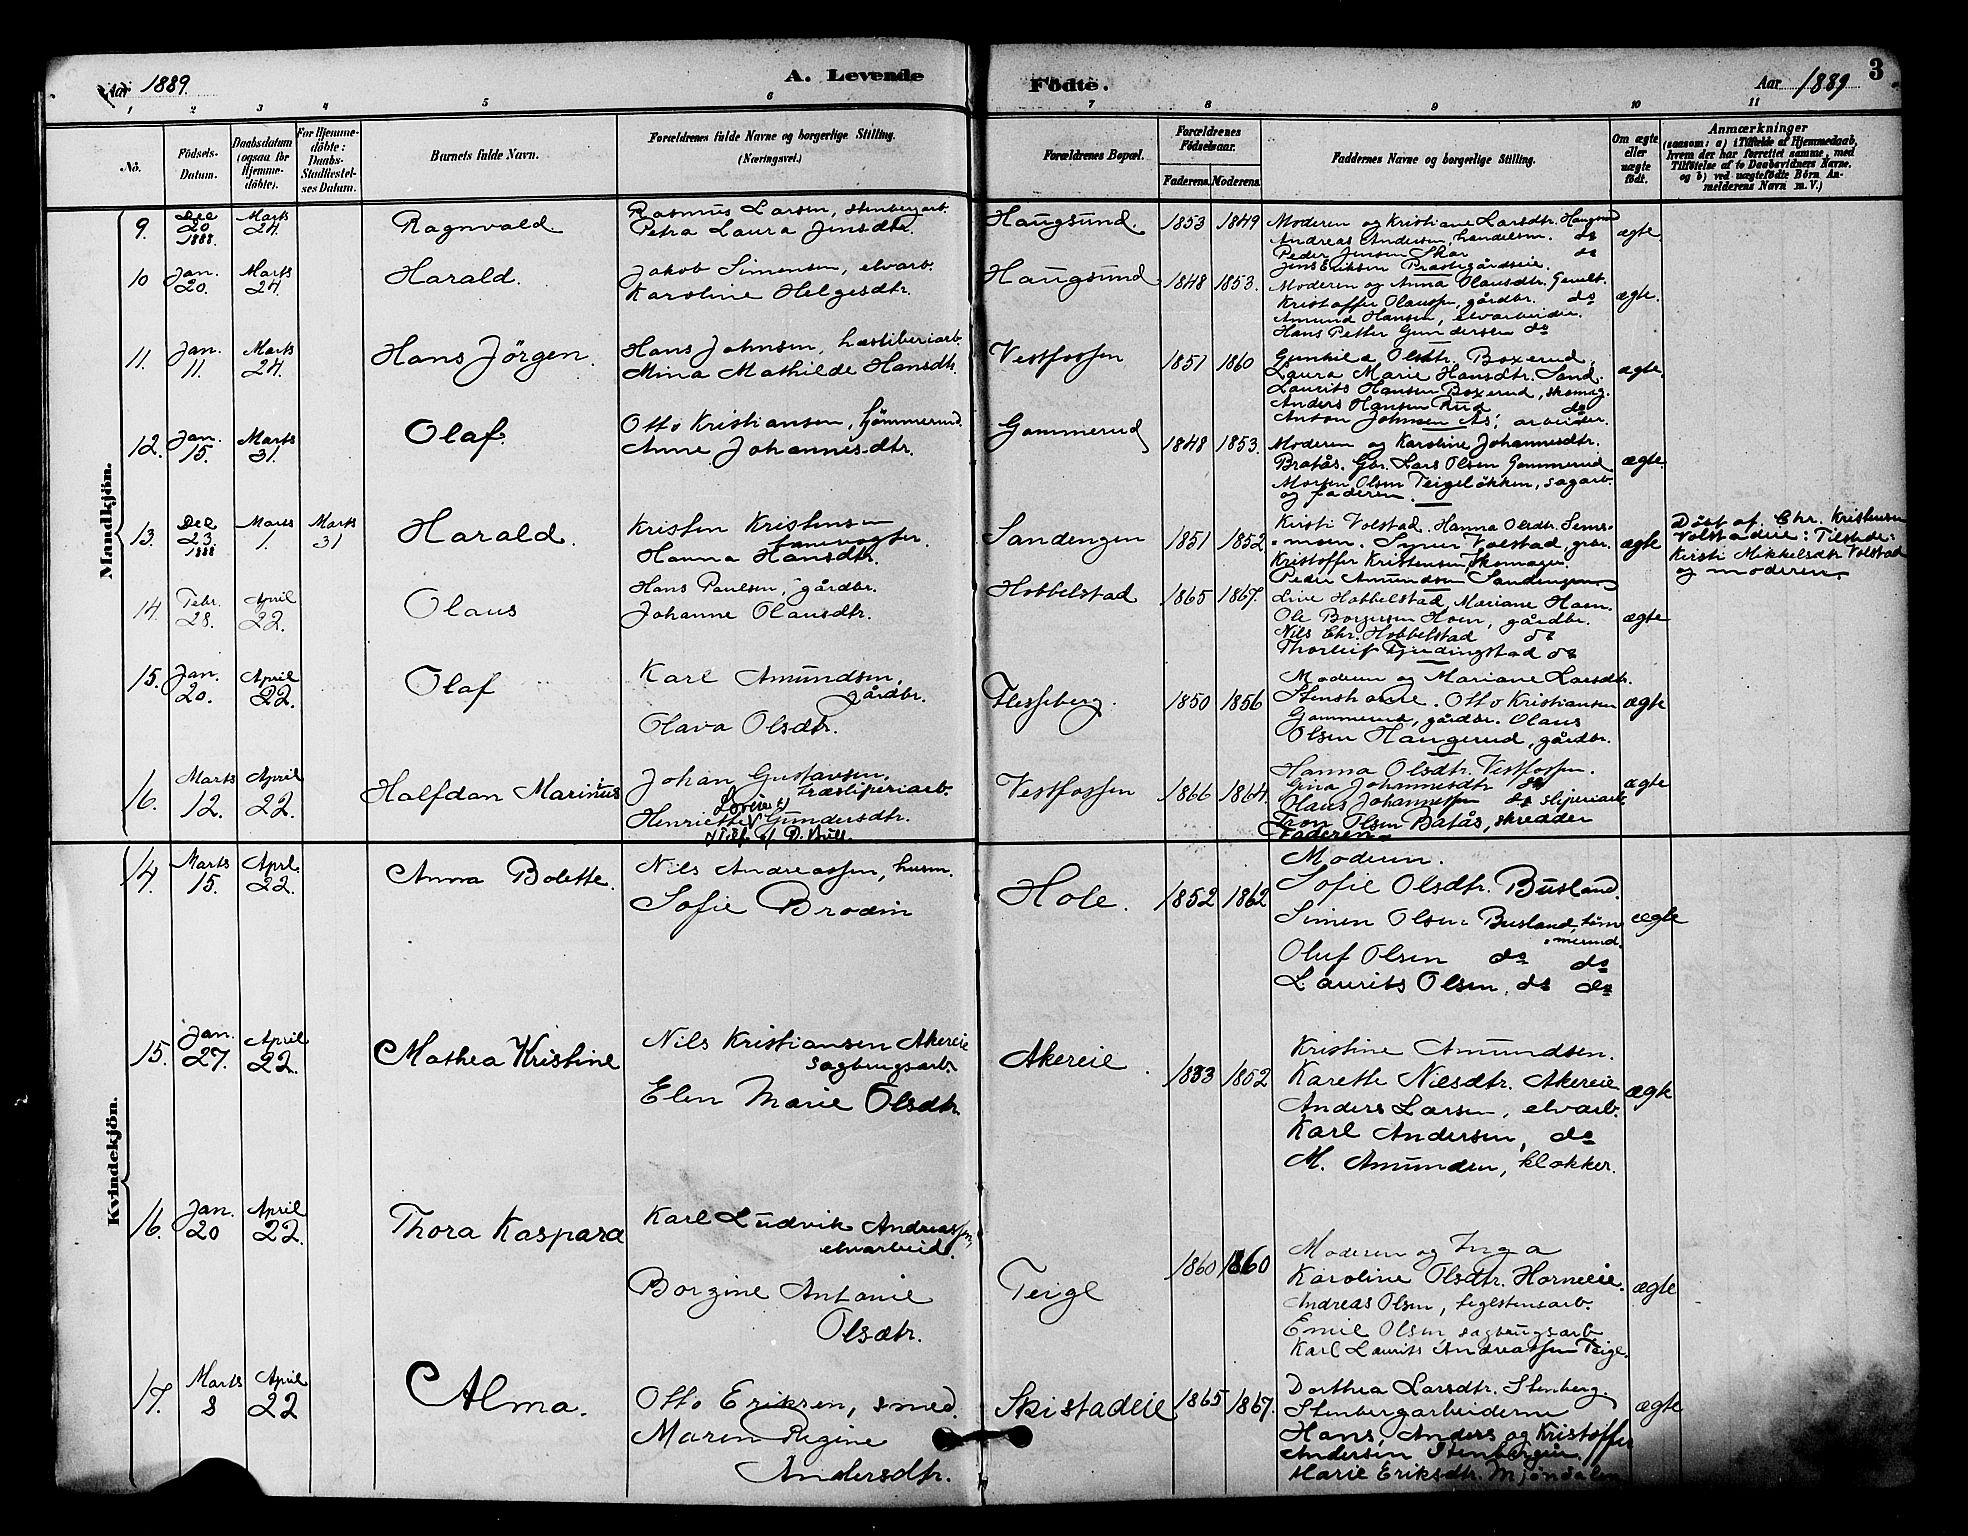 Aar 1889. A. Levende Födte. Aar 1889 3
1 2 3 4 5 6 7 8 9 10 11
No.
Födsels-
Datum.
Daabsdatum
(ogsaa for
Hjemme-
döbte).
For Hjemme-
döbte:
Daabs-
Stadfæstel-
ses Datum.
Barnets fulde Navn.
Forældrenes fulde Navne og borgerlige Stilling.
(Næringsvei.)
Forældrenes Bopæl.
Forældrenes
Födselsaar.
Faderens. Moderens.
Faddernes Navne og borgerlige Stilling.
Om ægte
eller
uægte
födt.
Anmærkninger
(saasom: a) i Tilfælde af Hjemmedaab,
hvem der har forrettet samme, med
Tilföielse af to Daabsvidners Navne,
og b) ved uægtefödte Börn An-
melderens Navn m. V.)
Mandkjön.
9. Dec 20 1888. Marts 24. Ragnvald. Rasmus Larsen, stenbergarb.
Petra Laura Jensdtr. Haugsund. 1853 1849 ægte.
Moderen og Kristiane Larsdtr. Haugsund
Andreas Andersen, handelsm. do
Peder Jensen Skar do
Jens Eriksen Præstegårdseie.
10 Jan. 20. Marts 24. Harald. Jakob Simensen, elvarb.
Karoline Helgesdtr. Haugsund 1848 1853. ægte.
Moderen og Anna Olausdtr.
Kristoffer Olaussen, gårdbr. do
Amund Hansen, elvarbeider.
Hans Petter Gundersen do
11. Jan. 11. Marts 24. Hans Jörgen. Hans Johnsen,
Mina Mathilde Hansdtr. Vestfossen 1851 1860 ægte.
Gunhild Olsdtr. Boxerud.
Laura Marie Hansdtr. Sand.
Laurits Hansen Boxerud, skomag.
Anders Hansen Rud do
Anton Johnsen Ås, arbeider.
12. Jan. 15. Marts 31. Olaf. Otto Kristiansen, tömmermd.
Anne Johannesdtr. Gommerud 1848 1853. ægte
Moderen og Karoline Johannesdtr.
Bratås. Gbr. Lars Olsen Gommerud
Morten Olsen Teigelökken, sagarb.
og faderen.
13. Dec 23. 1888 Marts 1. Marts 31 Harald. Kristen Kristensen
Hanna Hansdtr. Sandengen 1851 1852 ægte
Kirsti Volstad. Hanna Olsdtr. Sems-
moen. Syver Volstad, gbr.
Kristoffer Kristensen, Skomager.
Peder Amundsen Sandengen
Döbt af Chr. Kristensen
Volstadeie: Tilstede:
Kirsti Mikkelsdtr Volstad
og moderen.
14. Febr. 28. April 22. Olaus Hans Paulsen, gårdbr.
Johanne Olausdtr. Hobbelstad 1865 1867. ægte
Live Hobbelstad, Mariane Hoen.
Ole Borgersen Hoen, gårdbr.
Nils Chr. Hobbelstad do
Thorleif Gjudingstad do
15. Jan. 20. April 22. Olaf Karl Amundsen,
gårdbr.
Olava Olsdtr. Flesseberg. 1850 1856 ægte
Moderen og Mariane Larsdtr.
Otto Kristiansen
Gommerud, gårdbr. Olaus
Olsen Haugerud, gårdbr.
16. Marts 12. April 22. Halfdan Marinius Johan Gustavsen,
træsliperiarb.
Henriette Lovise Gundersdtr. Vestfossen 1866 1864. ægte
Hanna Olsdtr. Vestfossen.
Gina Johannesdtr do
Hans Johannessen do sliperiarb.
Tron Olsen Batås, skredder
Faderen.
Kvindekjön.
14. Marts 15. April 22. Anna Bolette. Nils Andreassen, husm.
Sofie Brodin Hole. 1852 1862 ægte
Moderen.
Sofie Olsdtr. Busland.
Simen Olsen Busland, töm-
mermd.
Oluf Olsen do do
Laurits Olsen, do do
15. Jan. 27. April 22. Mathea Kristine Nils Kristiansen Akereie
sagbrugsarb.
Elen Marie Olsdtr. Akereie. 1853 1852 ægte
Kristine Amundsen.
Karette Nilsdtr. Akereie
Anders Larsen, elvarb.
Karl Andersen, do
M. Amundsen, klokker.
16. Jan. 20 April 22. Thora Kaspara Karl Ludvik Andreassen,
elvarbeid.
Borgine Antonie
Olsdtr. Teigl 1860 1860 ægte
Moderen og Inga
Karoline Olsdtr. Horneeie.
Andreas Olsen, teglstensarb.
Emil Olsen, sagbrugsarb.
Karl Laurits Andreassen Teigl.
17. Marts 8 April 22 Alma. Otto Eriksen, smed.
Maren Regine
Andersdtr. Skistadeie 1865 1867. ægte
Dorthea Larsdtr. Stenberg.
Stenbergarbeiderne
Hans, Anders og Kristoffer
Andersen Stenbergeie.
Marie Eriksdtr. Mjöndalen